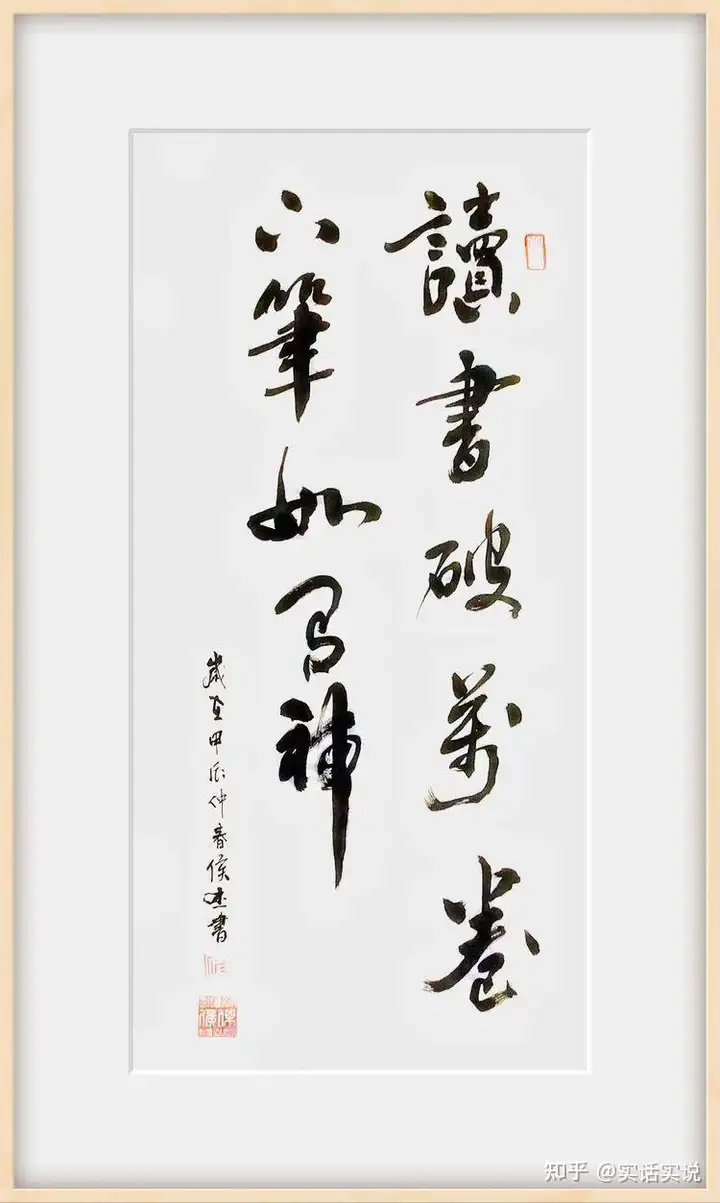 讀書破萬卷
下筆如有神
歲在甲辰仲春侯杰書
知乎 @实话实说